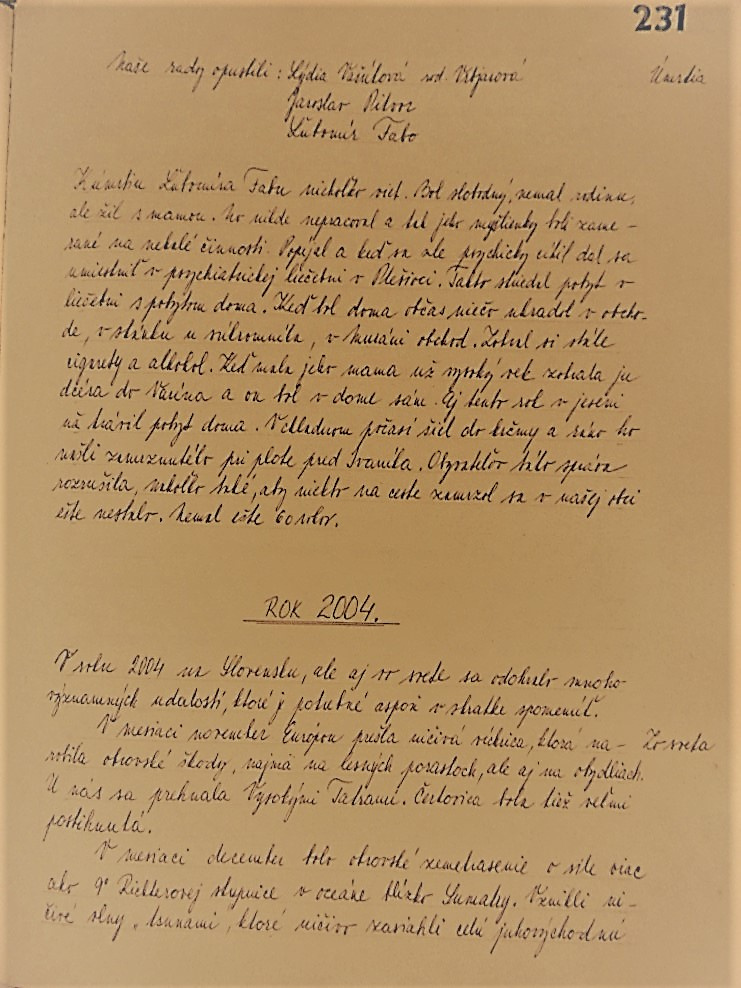 231
Naše rady opustili : Lýdia Vašúlová rod. Vrbjarová Úmrtia
Jaroslav Pilvor
Ľubomír Fabo
K úmrtiu Ľubomíra Fabu niekoľko viet. Bol slobodný, nemal rodinu,
ale žil s mamou. No nikde nepracoval a tak jeho myšlienky boli zame-
rané na nekalé činnosti. Popíjal a keď sa zle psychicky cítil dal sa
umiestniť v psychiatrickej liečebni v Plešivci. Takto striedal pobyt v
liečebni s pobytom doma. Keď bol doma občas niečo ukradol v obcho-
de, v stánku u súkromníka, v obchod. Zobral si stále
cigarety a alkohol. Keď mala jeho mama už vysoký vek zobrala ju
dcéra do Varína a on bol v dome sám. Aj tento rok v jeseni
trávil pobyt doma. V chladnom počasí šiel do krčmy a ráno ho
našli zamrznutého pri plote pred Ivaniča. Obyvateľov táto správa
rozrušila, nakoľko také, aby niekto na ceste zamrzol sa v našej obci
ešte nestalo. Nemal ešte 60 rokov.
ROK 2004.
V roku 2004 na Slovensku, ale aj vo svete sa odohralo mnoho
významných udalostí, ktoré je potrebné aspoň v skratke spomenúť.
V mesiaci november Európou prešla ničivá víchrica, ktorá na- Zo sveta
robila obrovské škody, najmä na lesných porastoch, ale aj na obydliach.
U nás sa prehnala Vysokými Tatrami. Čertovica bola tiež veľmi
postihnutá.
V mesiaci december bolo obrovské zemetrasenie o sile viac
ako 9° Richterovej stupnice v oceáne blízko Sumatry. Vznikli ni-
čivé vlny „tsunami", ktoré ničivo zasiahli celú juhovýchodnú